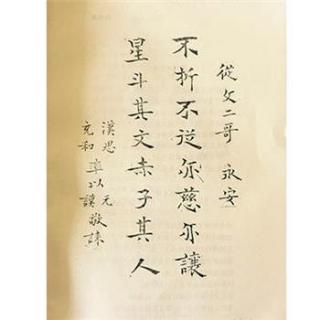 從文二哥 永安
不折不從亦慈亦讓
星斗其文赤子其人
漢思
充和 率以 元
謨 敬誄